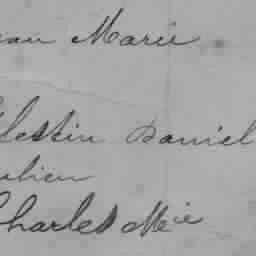 ean Marie
élestin Daniel
ulien
Charles Mie